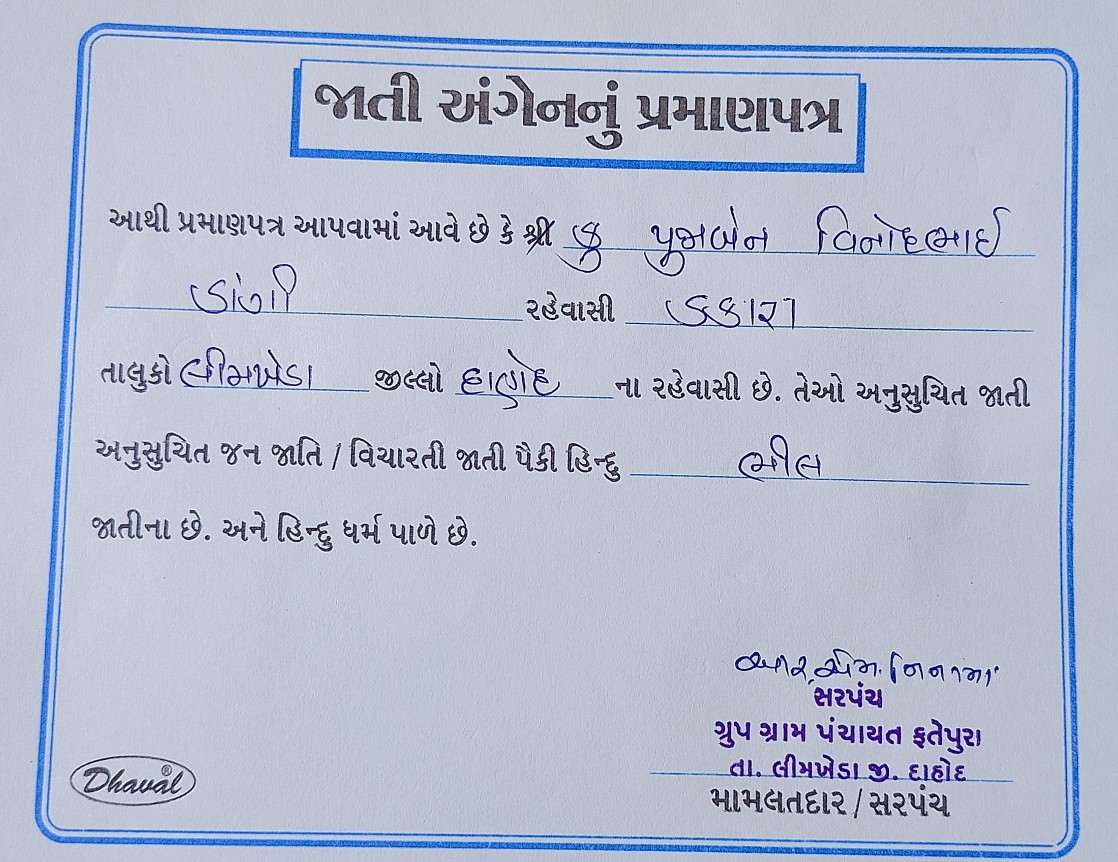 જાતી અંગેનનું પ્રમાણપત્ર
આથી પ્રમાણપત્ર આપવામાં આવે છે કે શ્રી કુ પુજાબેન વિનોદભાઈ
ડાંગી રહેવાસી ડકારા
તાલુકો લીમખેડા જીલ્લો દાહોદ ના રહેવાસી છે. તેઓ અનુસુચિત જાતી
અનુસુચિત જન જાતિ / વિચારતી જાતી પૈકી હિન્દુ ભીલ
જાતીના છે. અને હિન્દુ ધર્મ પાળે છે.
આર. એમ. નિનામા
સરપંચ
ગ્રુપ ગ્રામ પંચાયત ફતેપુરા
તા. લીમખેડા જી. દાહોદ
મામલતદાર / સરપંચ
Dhaval®